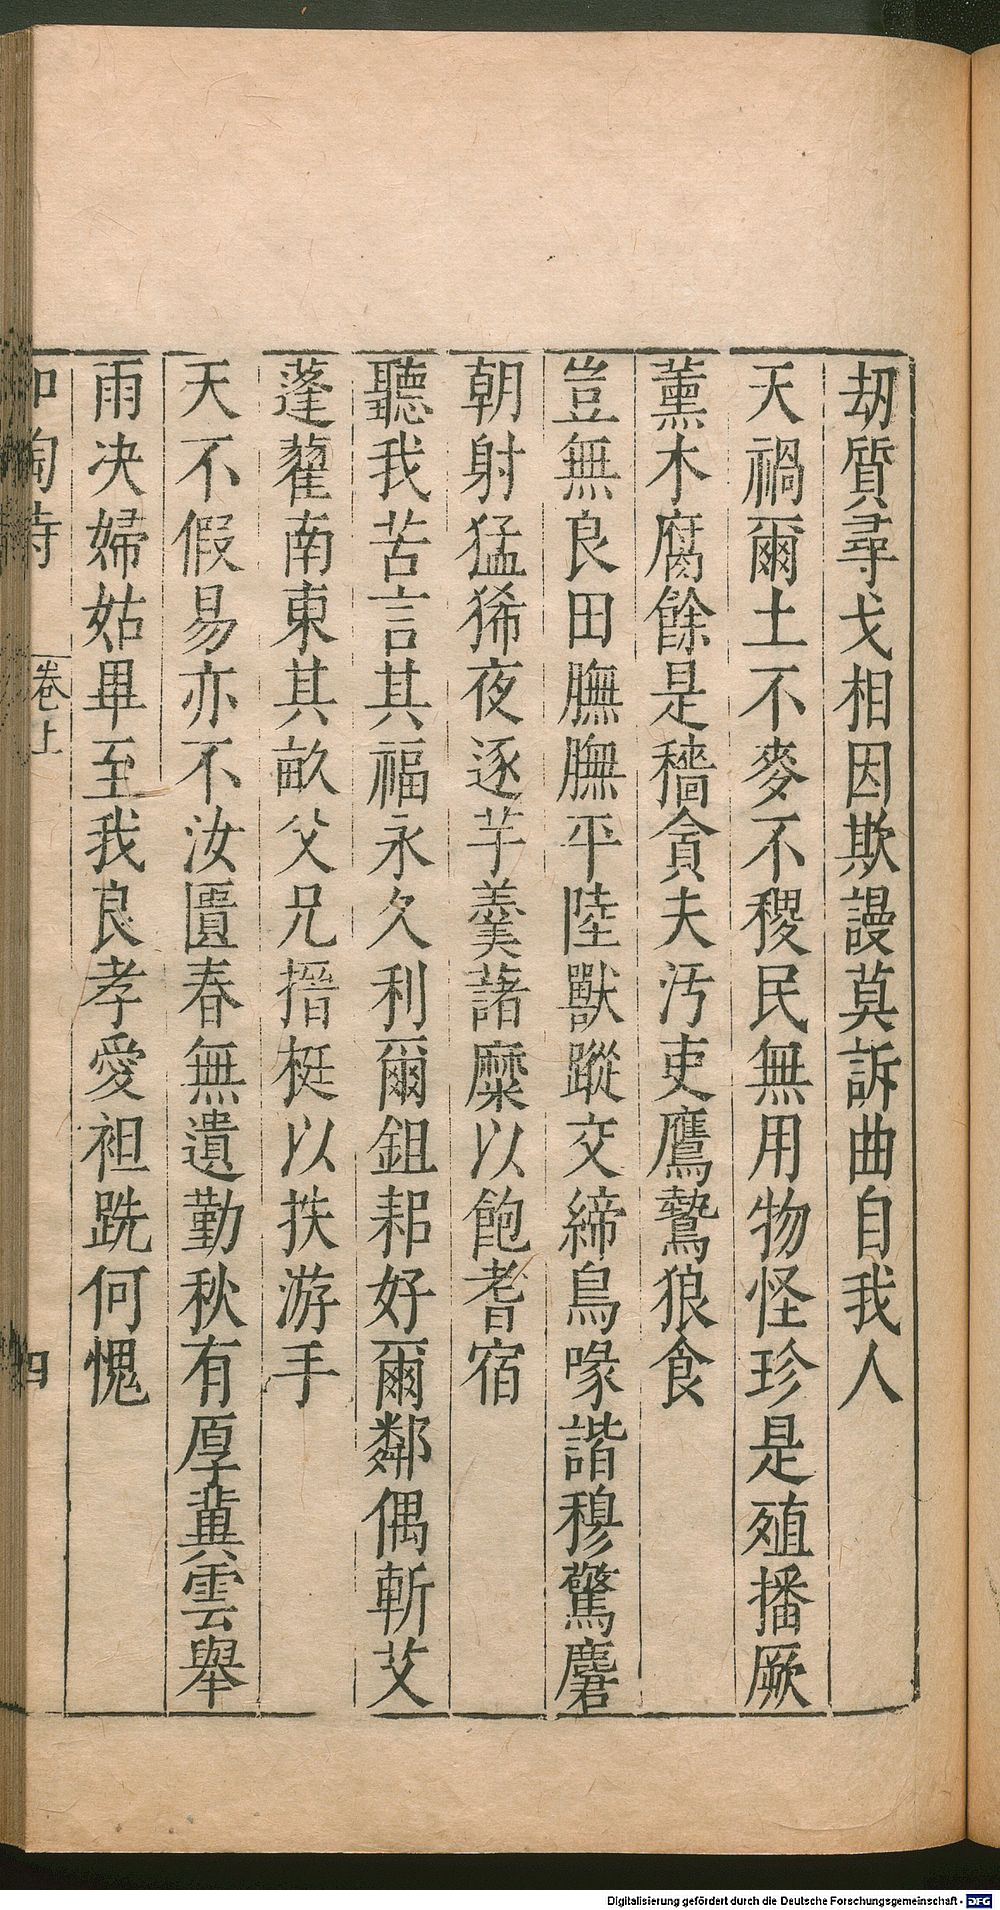 刼質尋戈相因欺謾莫訴曲自我人
天禍爾土不麥不稷民無用物怪珍是殖播厥
薰木腐餘是穡貪夫汚吏鷹鷙狼食
豈無良田膴膴平陸獸蹤交締鳥喙諧穆驚麏
朝射猛豨夜逐芋羹藷糜以飽耆宿
聽我苦言其福永久利爾鉏耜好爾鄰偶斬艾
蓬藋南東其畝父兄搢梃以抶游手
天不假易亦不汝匱春無遺勤秋有厚冀雲舉
雨決婦姑畢至我良孝愛袒跣何愧
和陶詩 卷上 四
Digitalisierung gefördert durch die Deutsche Forschungsgemeinschaft - DFG